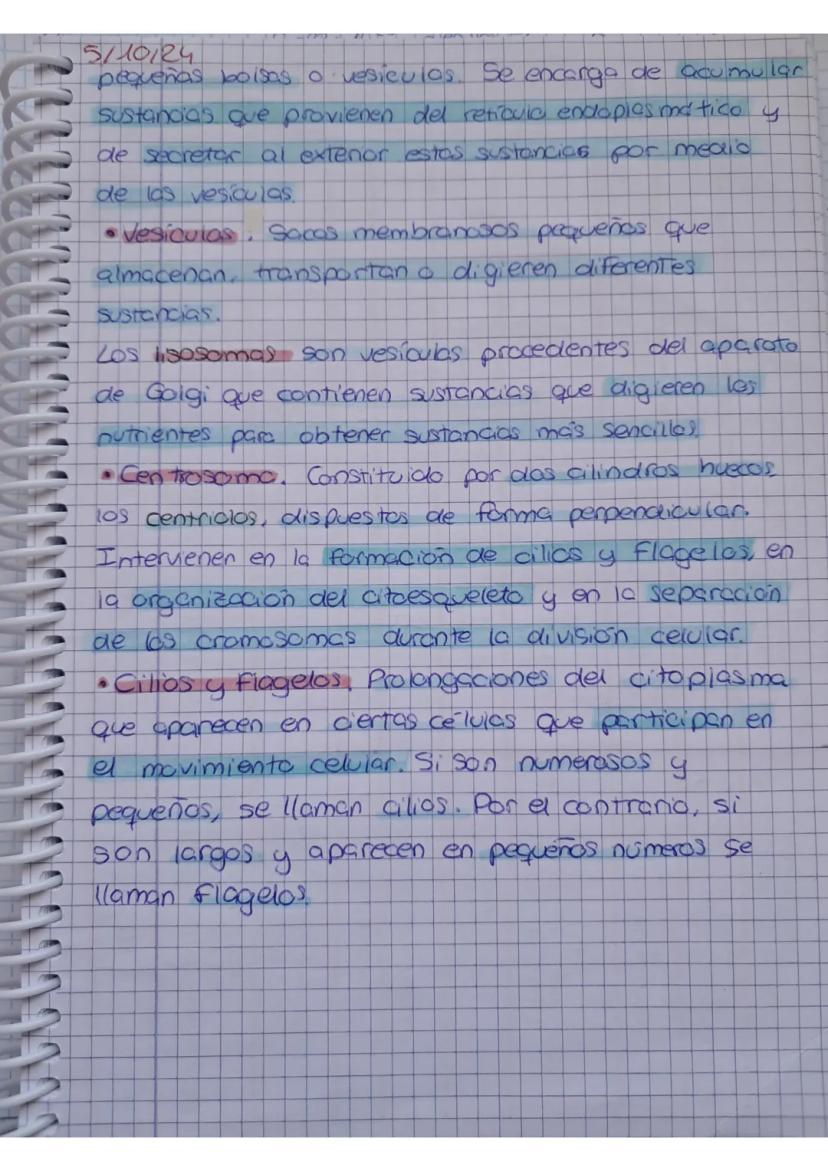 5/10/24
pequeñas bolsas o vesículas. Se encarga de acumular
sustancias que provienen del retículo endoplasmático y
de secretar al exterior estas sustancias por medio
de las vesículas.
• Vesículas. Sacos membranosos pequeños que
almacenan, transportan o digieren diferentes
sustancias.
Los lisosomas son vesículas procedentes del aparato
de Golgi que contienen sustancias que digieren los
nutrientes para obtener sustancias más sencillas.
• Centrosoma. Constituido por dos cilindros huecos
los centriolos, dispuestos de forma perpendicular.
Intervienen en la formación de cilios y flagelos, en
la organización del citoesqueleto y en la separación
de los cromosomas durante la división celular.
• Cilios y flagelos. Prolongaciones del citoplasma
que aparecen en ciertas células que participan en
el movimiento celular. Si son numerosos y
pequeños, se llaman cilios. Por el contrario, si
son largos y aparecen en pequeños números se
llaman flagelos.